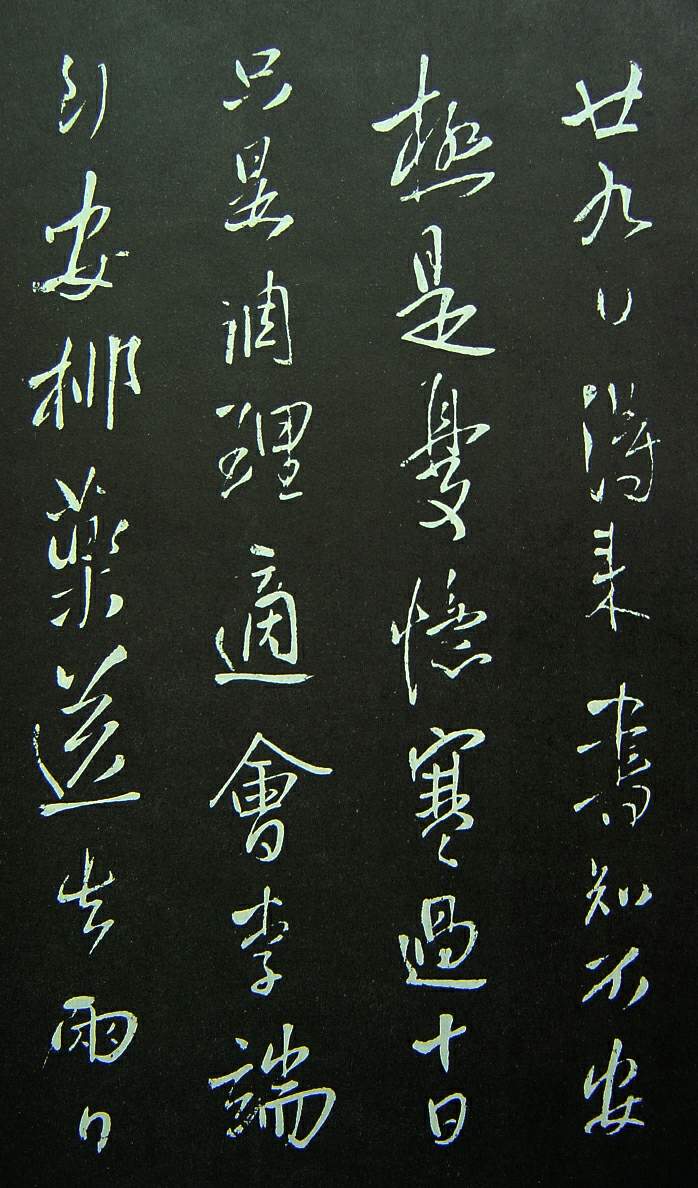 廿九日得来書知不安
極是憂憶寒過十日
只是調理適會李端
到安排藥送去兩日